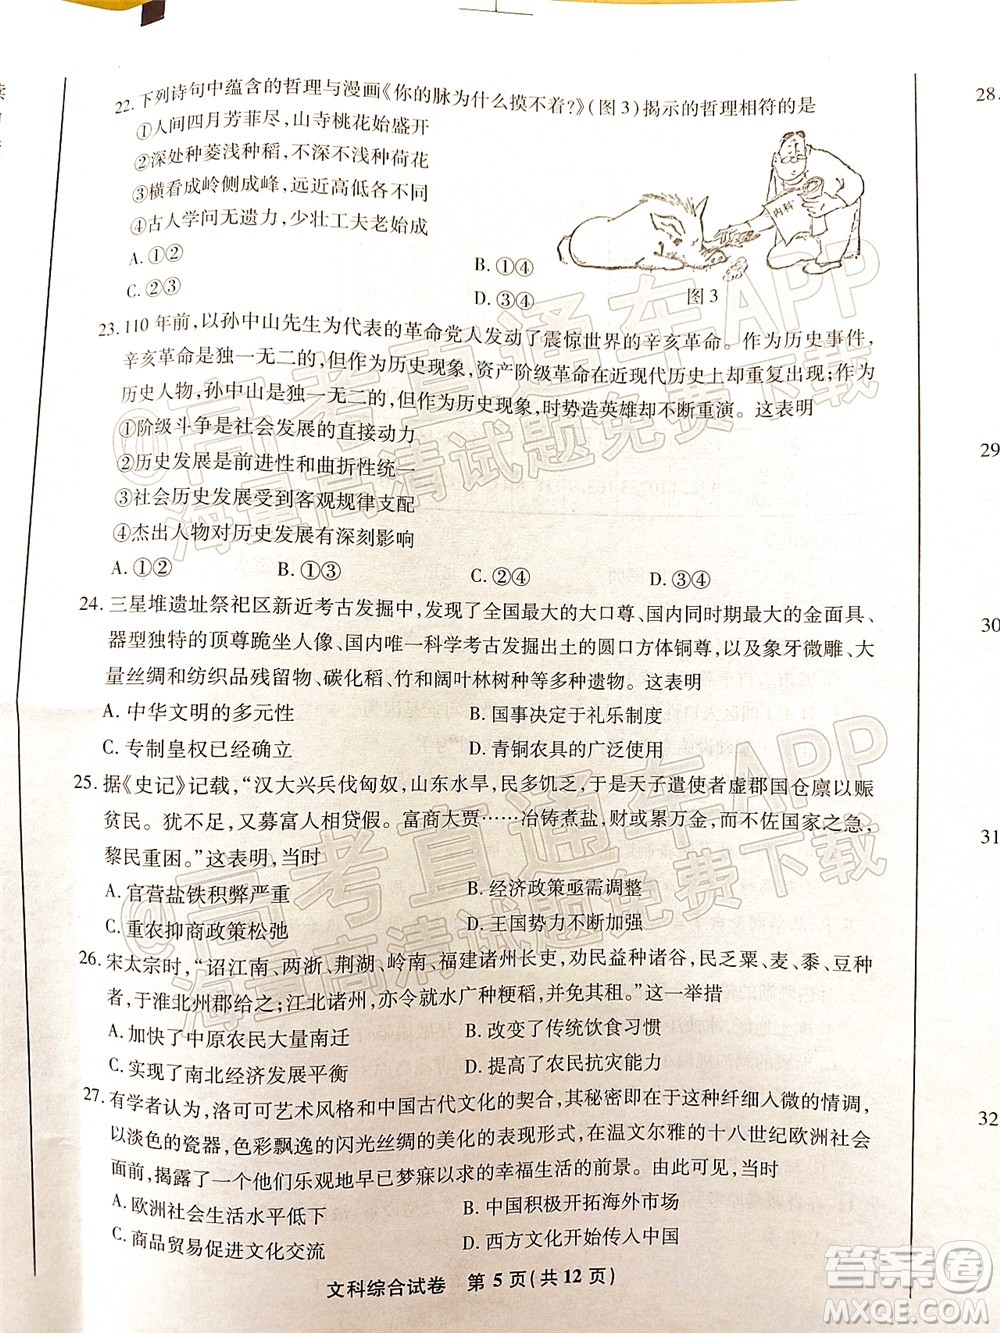 22. 下列诗句中蕴含的哲理与漫画《你的脉为什么摸不着?》(图3)揭示的哲理相符的是
①人间四月芳菲尽,山寺桃花始盛开
②深处种菱浅种稻,不深不浅种荷花
③横看成岭侧成峰,远近高低各不同
④古人学问无遗力,少壮工夫老始成
A. ①②
B. ①④
C. ②③
D. ③④
内科
图3
23. 110年前,以孙中山先生为代表的革命党人发动了震惊世界的辛亥革命。作为历史事件,
辛亥革命是独一无二的,但作为历史现象,资产阶级革命在近现代历史上却重复出现;作为
历史人物,孙中山是独一无二的,但作为历史现象,时势造英雄却不断重演。这表明
①阶级斗争是社会发展的直接动力
②历史发展是前进性和曲折性统一
③社会历史发展受到客观规律支配
④杰出人物对历史发展有深刻影响
A. ①② B. ①③ C. ②④ D. ③④
24. 三星堆遗址祭祀区新近考古发掘中,发现了全国最大的大口尊、国内同时期最大的金面具、
器型独特的顶尊跪坐人像、国内唯一科学考古发掘出土的圆口方体铜尊,以及象牙微雕、大
量丝绸和纺织品残留物、碳化稻、竹和阔叶林树种等多种遗物。这表明
A. 中华文明的多元性	B. 国事决定于礼乐制度
C. 专制皇权已经确立	D. 青铜农具的广泛使用
25. 据《史记》记载,“汉大兴兵伐匈奴,山东水旱,民多饥乏,于是天子遣使者虚郡国仓廪以赈
贫民。犹不足,又募富人相贷假。富商大贾……冶铸煮盐,财或累万金,而不佐国家之急,
黎民重困。”这表明,当时
A. 官营盐铁积弊严重	B. 经济政策亟需调整
C. 重农抑商政策松弛	D. 王国势力不断加强
26. 宋太宗时,“诏江南、两浙、荆湖、岭南、福建诸州长吏,劝民益种诸谷,民乏粟、麦、黍、豆种
者,于淮北州郡给之;江北诸州,亦令就水广种粳稻,并免其租。”这一举措
A. 加快了中原农民大量南迁	B. 改变了传统饮食习惯
C. 实现了南北经济发展平衡	D. 提高了农民抗灾能力
27. 有学者认为,洛可可艺术风格和中国古代文化的契合,其秘密即在于这种纤细入微的情调,
以淡色的瓷器,色彩飘逸的闪光丝绸的美化的表现形式,在温文尔雅的十八世纪欧洲社会
面前,揭露了一个他们乐观地早已梦寐以求的幸福生活的前景。由此可见,当时
A. 欧洲社会生活水平低下	B. 中国积极开拓海外市场
C. 商品贸易促进文化交流	D. 西方文化开始传入中国
文科综合试卷 第5页(共12页)
28.
29
30
31
32
@高考直通车APP
海量高清试题免费下载
@高考直通车APP
海量高清试题免费下载
答案圈
MXQE.COM